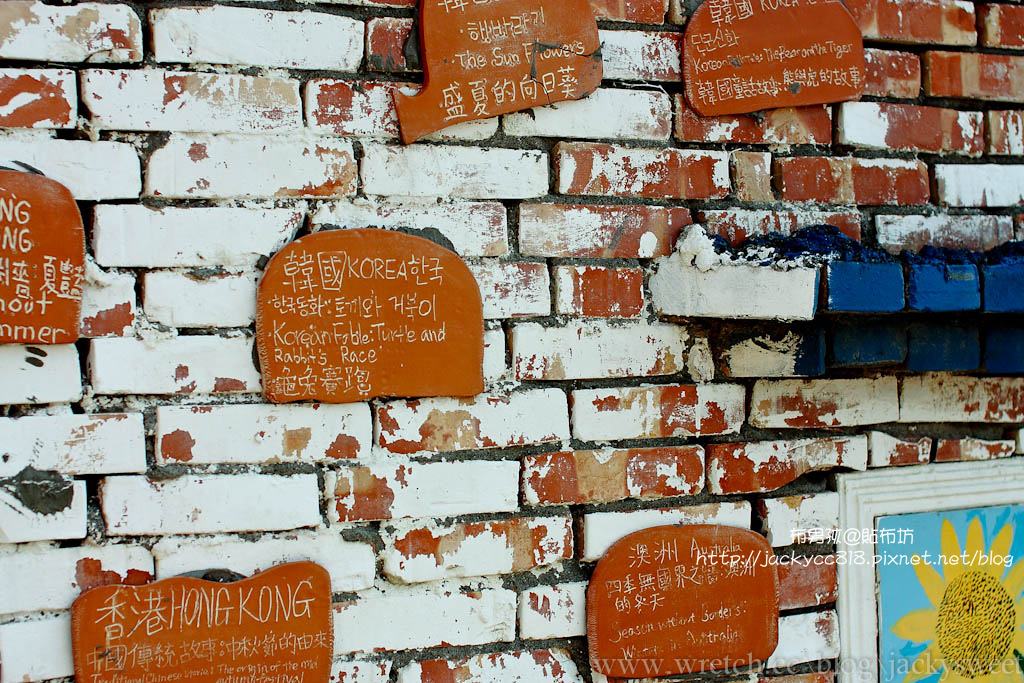 해바라기
The Sun Flowers
盛夏的向日葵
韓國 KOREA
단군신화
韓國童話故事:熊與虎的故事
NG
NG
mmer
韓國KOREA한국
한국동화:토끼와 거북이
Korean Fable: Turtle and
Rabbit's Race
龜兔賽跑
香港HONG KONG
中國傳統故事:沖秋節的由來
Traditional Chinese stories: The origin of the mid
autumn festival
澳洲 Australia
四季無國界之書:澳洲
的冬天
Season without Borders:
布男孩@貼布坊
http://jackycc818.pixnet.net/blog
www.wretch.cc/blog/jackysweet